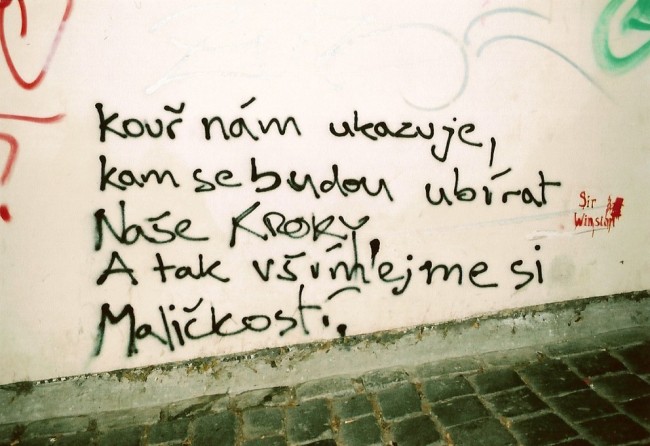 kouř nám ukazuje,
kam se budou ubírat
Naše KROKY,
A tak všímejme si
Maličkostí.
Sir
Winston